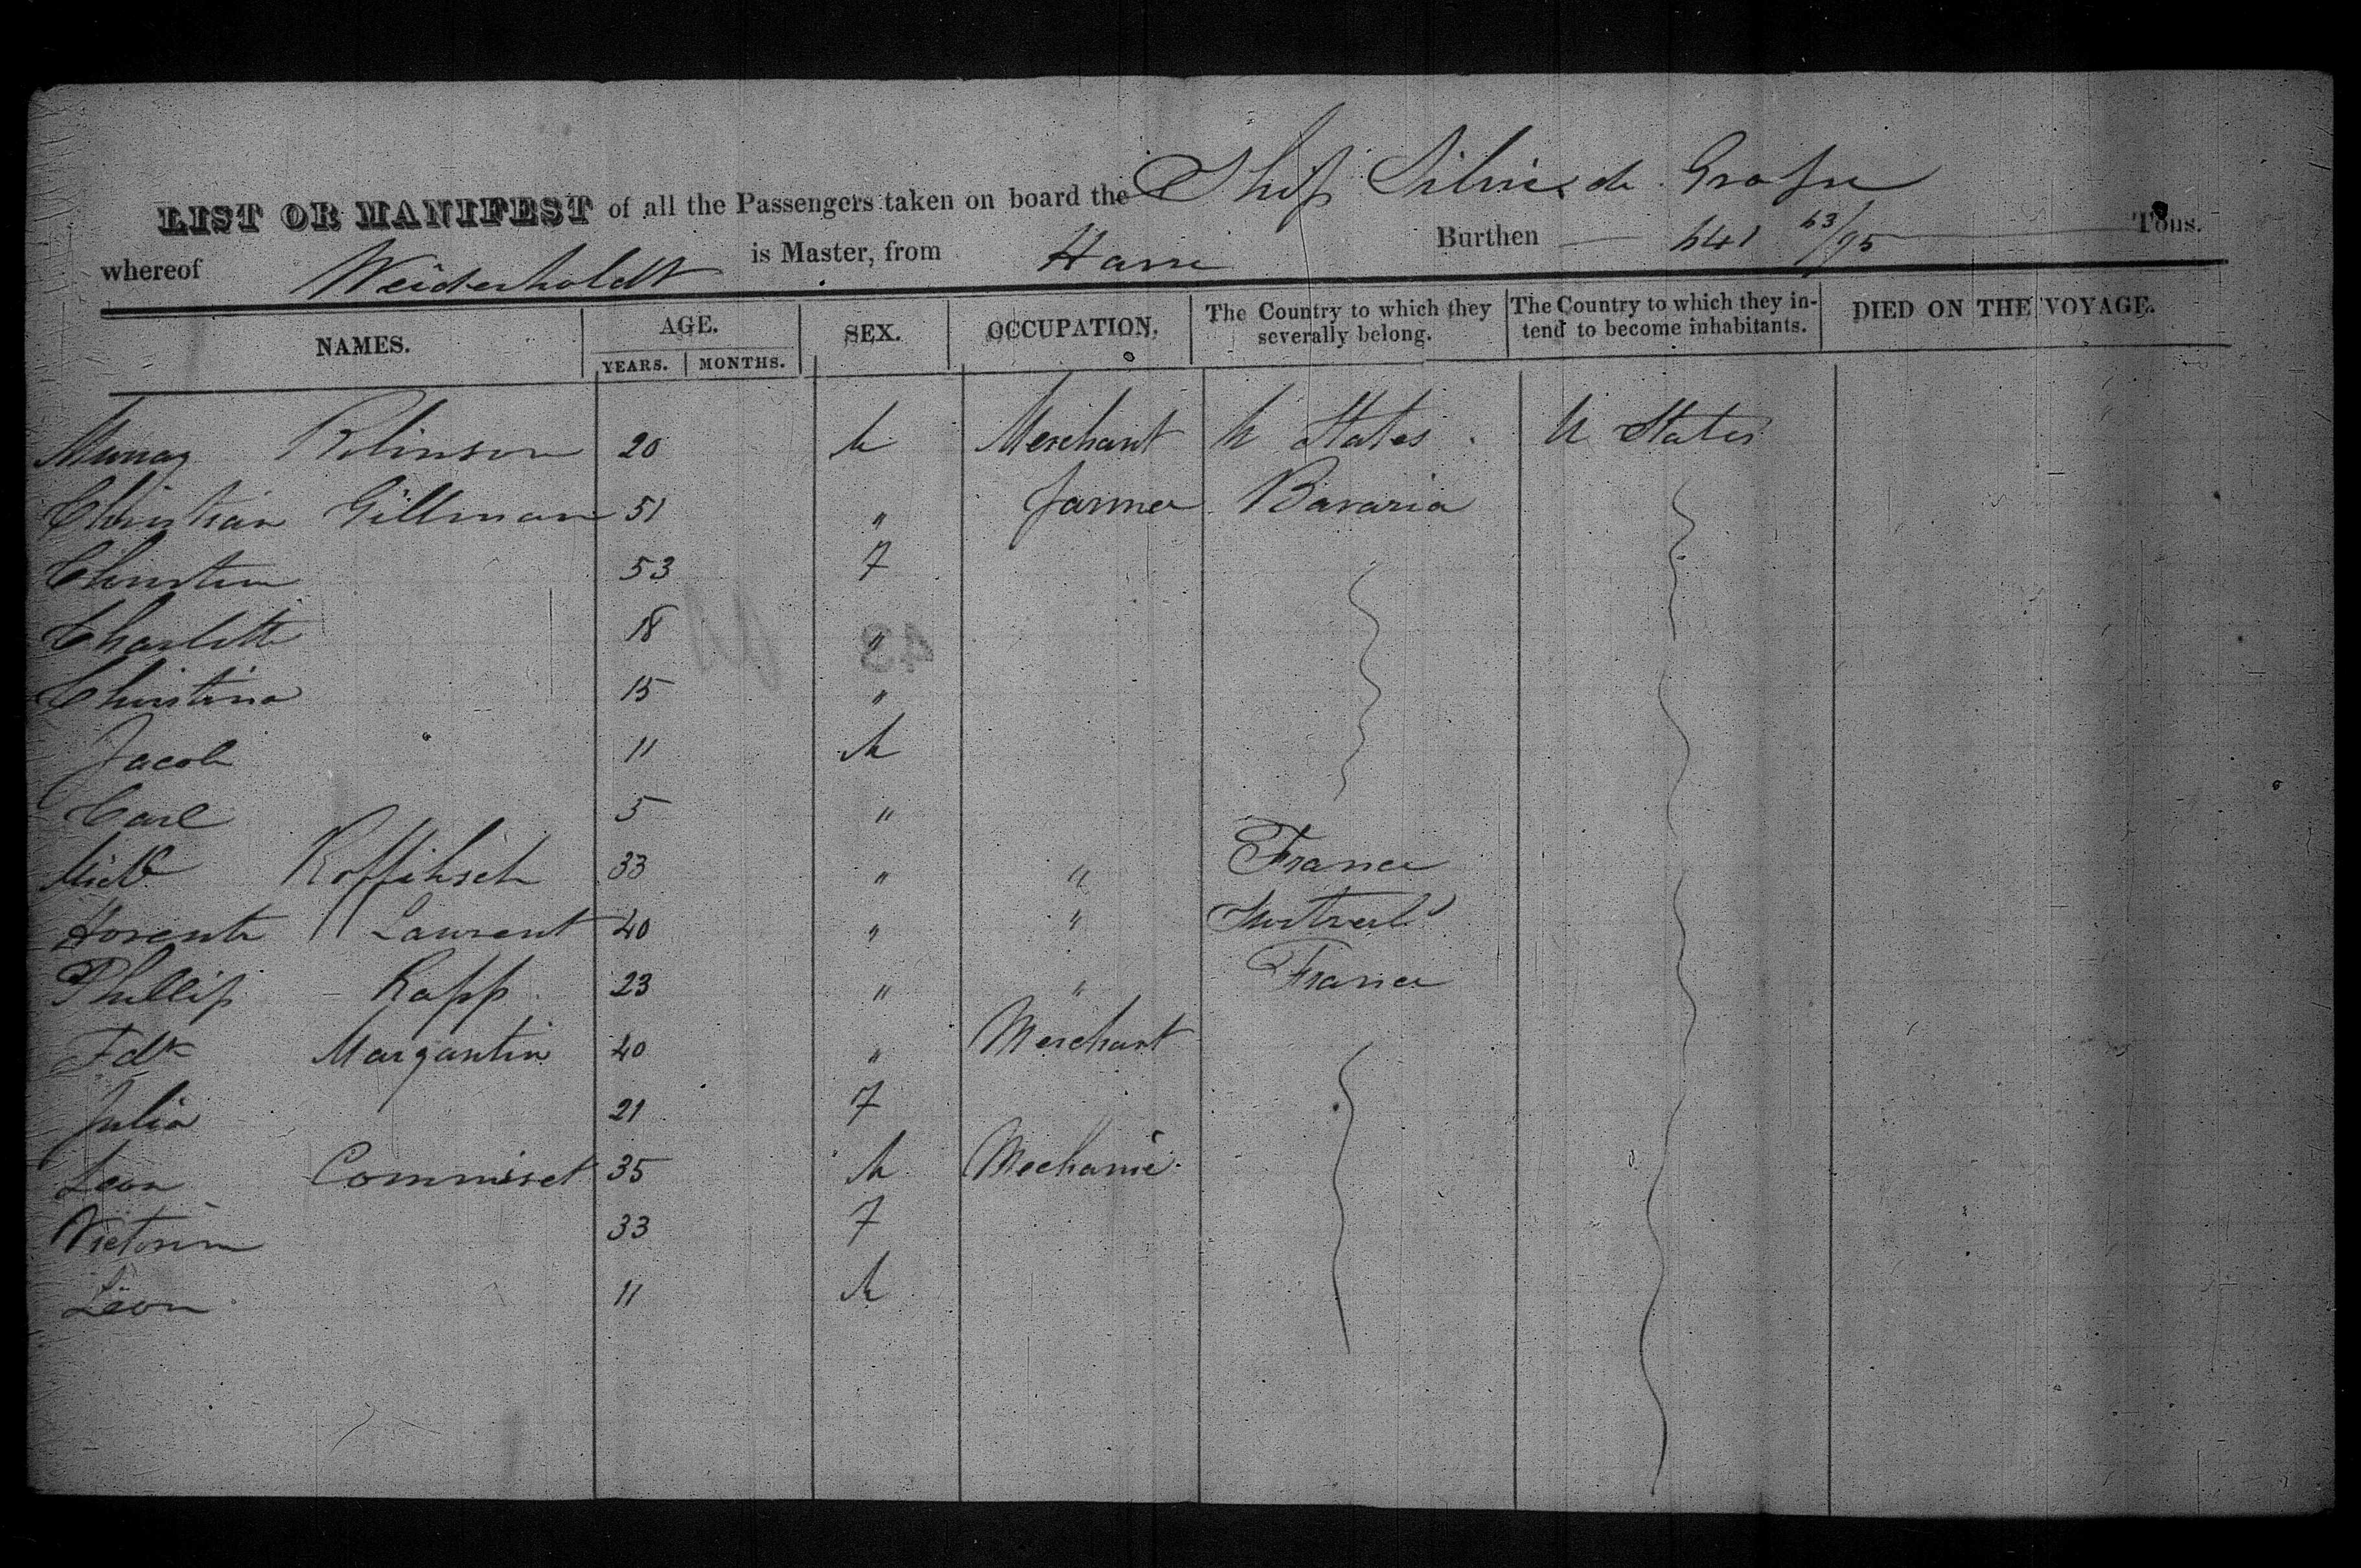 LIST OR MANIFEST of all the Passengers taken on board the Ship Silvie de Grasse
whereof Weiderholdt is Master, from Havre Burthen 641 63/95 Tons.
NAMES. AGE. YEARS. MONTHS. SEX. OCCUPATION. The Country to which they severally belong. The Country to which they intend to become inhabitants. DIED ON THE VOYAGE.
Murray Robinson 20 M Merchant U States U States
Christian Gillman 51 " farmer Bavaria
Christina 53 F
Charlotte 18 "
Christina 15 "
Jacob 11 M
Carl 5 "
33 " " France
Laurent 40 " "
Phillip Rapp 23 " " France
Fdk Margantin 40 " Merchant
Julia 21 F
Leon Commiset 35 M Mechanic
Victorine 33 F
Léon 11 M